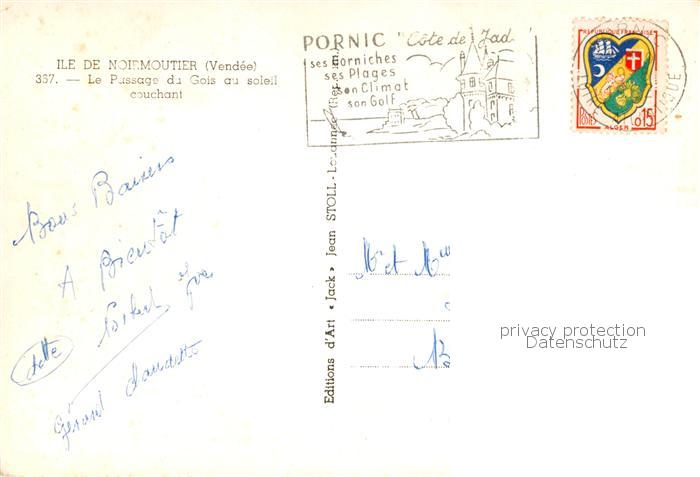 ILE DE NOIRMOUTIER (Vendée)
337. — Le Passage du Gois au soleil
couchant
PORNIC "Côte de Jad
ses Corniches
ses Plages
son Climat
son Golf
REPUBLIQUE FRANÇAISE
POSTES 0,15
ALGER
Bons Baisers
A Bientôt
Gérard Claudette
Editions d'Art « Jack » Jean STOLL -
M et Mme
privacy protection
Datenschutz